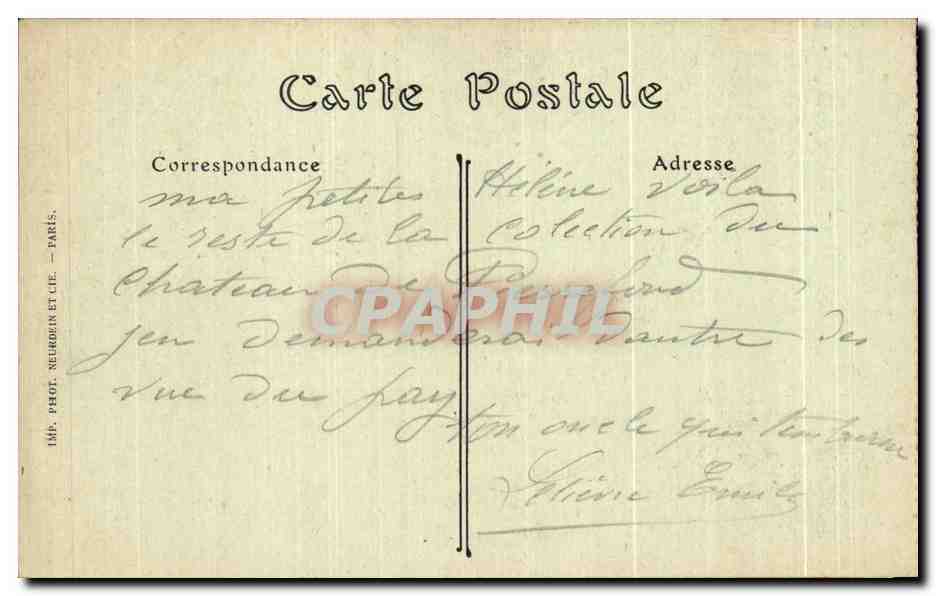 Carte Postale
Correspondance
Adresse
ma petites Hélène voila
le reste de la colection du
chateau de
jen demanderai dautre des
vue du pay
ton oncle qui
Lelièvre Emile
IMP. PHOT. NEURDEIN ET CIE. — PARIS.
CPAPHIL